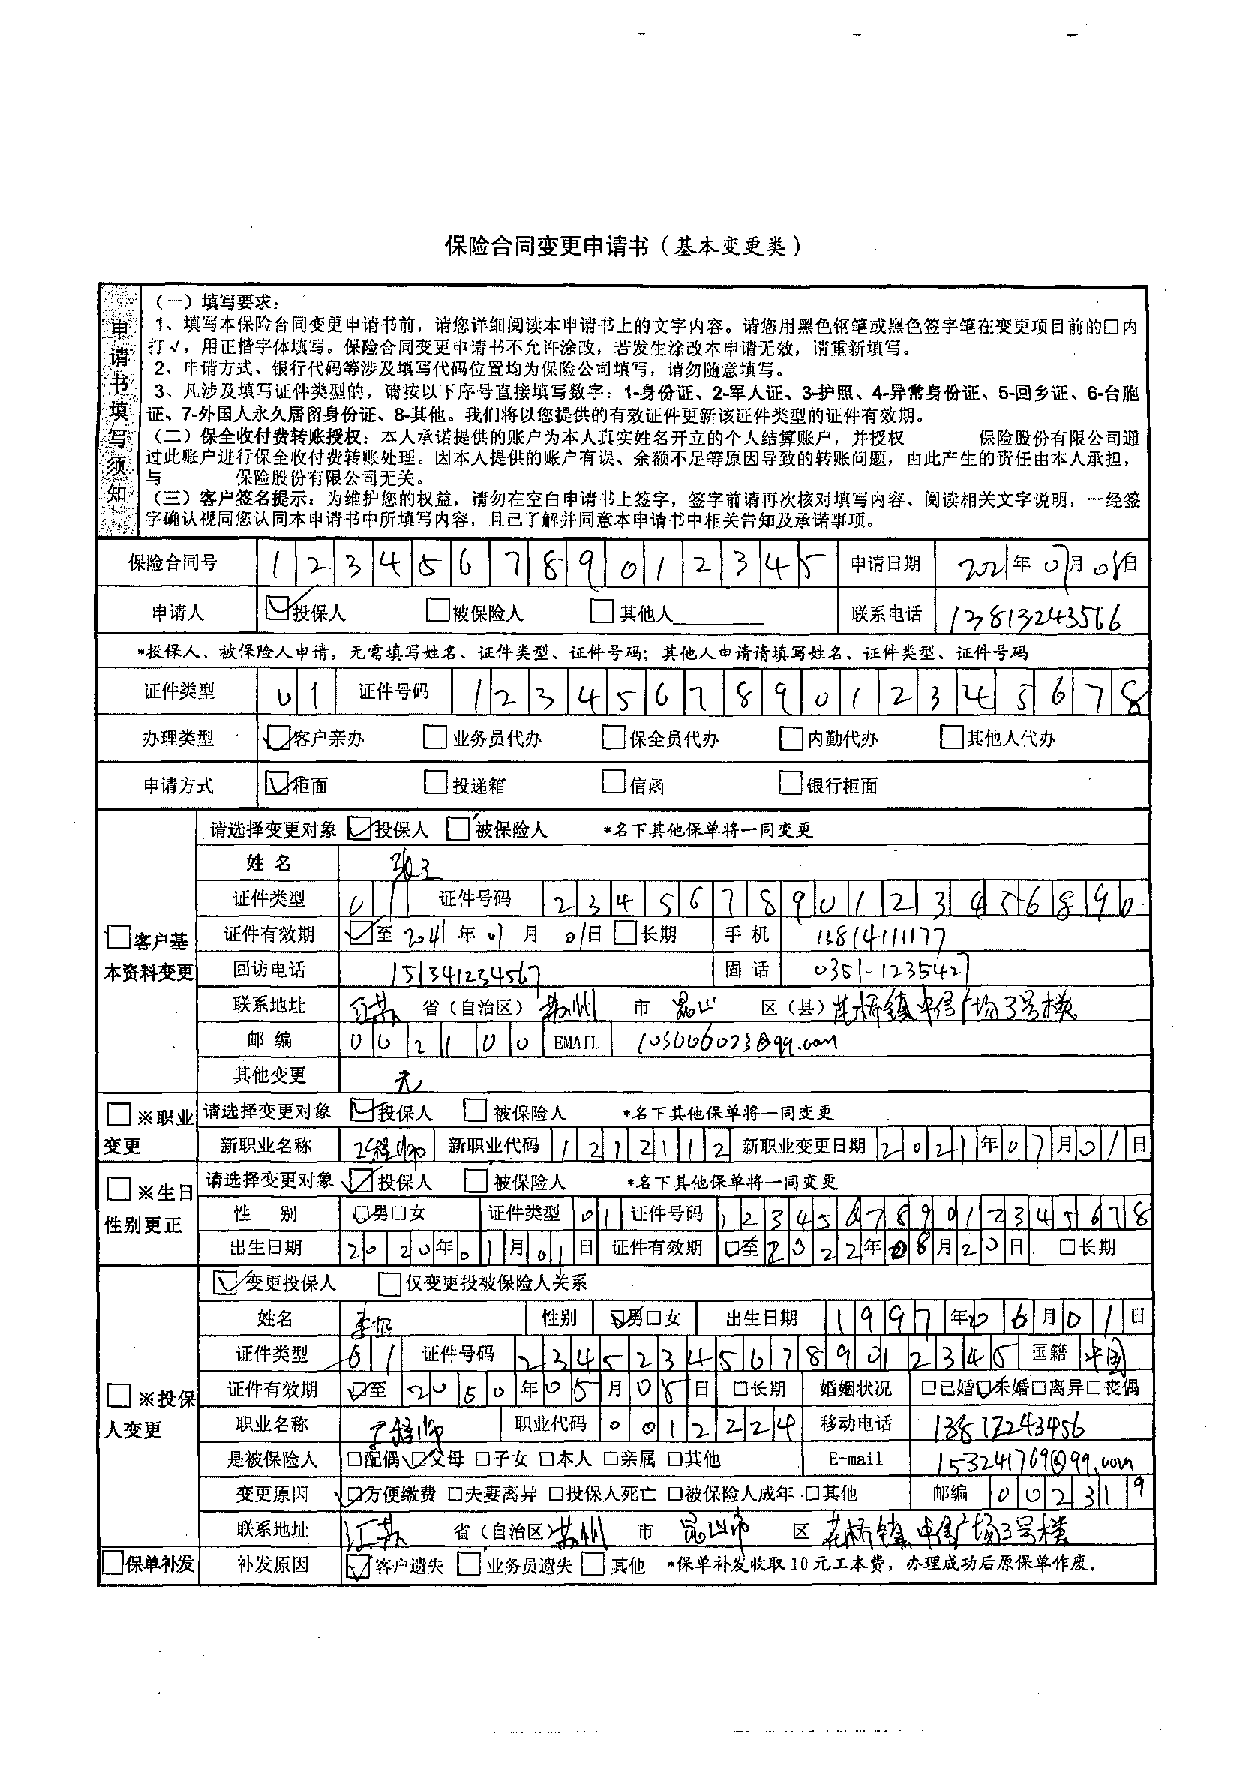 保险合同变更申请书（基本变更类）
申请书填写须知
（一）填写要求：
1、填写本保险合同变更申请书前，请您详细阅读本申请书上的文字内容。请您用黑色钢笔或黑色签字笔在变更项目前的□内
打√，用正楷字体填写。保险合同变更申请书不允许涂改，若发生涂改本申请无效，请重新填写。
2、申请方式、银行代码等涉及填写代码位置均为保险公司填写，请勿随意填写。
3、凡涉及填写证件类型的，请按以下序号直接填写数字：1-身份证、2-军人证、3-护照、4-异常身份证、5-回乡证、6-台胞
证、7-外国人永久居留身份证、8-其他。我们将以您提供的有效证件更新该证件类型的证件有效期。
（二）保全收付费转账授权：本人承诺提供的账户为本人真实姓名开立的个人结算账户，并授权 保险股份有限公司通
过此账户进行保全收付费转账处理。因本人提供的账户有误、余额不足等原因导致的转账问题，由此产生的责任由本人承担，
与 保险股份有限公司无关。
（三）客户签名提示：为维护您的权益，请勿在空白申请书上签字，签字前请再次核对填写内容、阅读相关文字说明，一经签
字确认视同您认同本申请书中所填写内容，且已了解并同意本申请书中相关告知及承诺事项。
保险合同号 123456789012345 申请日期 2021年07月01日
申请人 ☑投保人 □被保险人 □其他人 联系电话 13813243566
*投保人、被保险人申请，无需填写姓名、证件类型、证件号码；其他人申请请填写姓名、证件类型、证件号码
证件类型 01 证件号码 123456789012345678
办理类型 ☑客户亲办 □业务员代办 □保全员代办 □内勤代办 □其他人代办
申请方式 ☑柜面 □投递箱 □信函 □银行柜面
□客户基本资料变更
请选择变更对象 ☑投保人 □被保险人 *名下其他保单将一同变更
姓 名 张三
证件类型 01 证件号码 234567890123456890
证件有效期 ☑至 2041年01月01日 □长期 手 机 13814111177
回访电话 151341234567 固 话 0351-1235427
联系地址 江苏 省（自治区）苏州 市 昆山 区（县）花桥镇中信广场3号楼
邮 编 002100 EMAIL 103006023@qq.com
其他变更 无
□※职业变更
请选择变更对象 ☑投保人 □被保险人 *名下其他保单将一同变更
新职业名称 工程师 新职业代码 1212112 新职业变更日期 2021年07月01日
□※生日性别更正
请选择变更对象 ☑投保人 □被保险人 *名下其他保单将一同变更
性 别 ☑男□女 证件类型 01 证件号码 123456789012345678
出生日期 2020年01月01日 证件有效期 ☑至2022年08月20日 □长期
□※投保人变更
☑变更投保人 □仅变更投被保险人关系
姓名 李四 性别 ☑男□女 出生日期 1997年06月01日
证件类型 01 证件号码 234523456789012345 国籍 中国
证件有效期 ☑至 2050年05月05日 □长期 婚姻状况 □已婚☑未婚□离异□丧偶
职业名称 工程师 职业代码 0012224 移动电话 13812243456
是被保险人 □配偶☑父母 □子女 □本人 □亲属 □其他 E-mail 153241769@qq.com
变更原因 ☑方便缴费 □夫妻离异 □投保人死亡 □被保险人成年 □其他 邮编 002319
联系地址 江苏 省（自治区）苏州 市 昆山市 区 花桥镇中信广场3号楼
□保单补发 补发原因 ☑客户遗失 □业务员遗失 □其他 *保单补发收取10元工本费，办理成功后原保单作废。